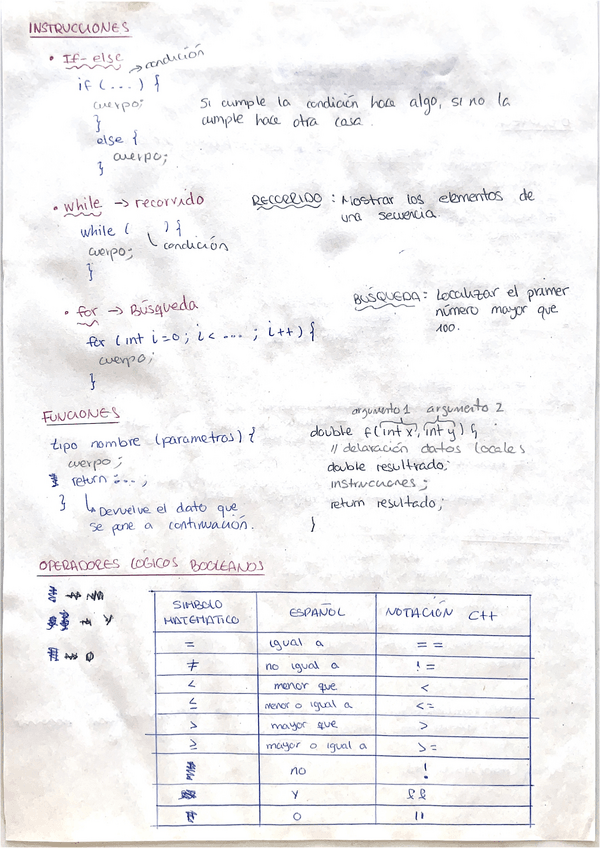 INSTRUCCIONES
• If-else → condición
if (...) {
cuerpo;
}
else {
cuerpo;
}
Si cumple la condición hace algo, si no la
cumple hace otra cosa.
• while → recorrido
while ( ) {
condición
cuerpo;
}
RECORRIDO: Mostrar los elementos de
una secuencia.
• for → Búsqueda
for (int i=0; i< ....; i++) {
cuerpo;
}
BÚSQUEDA: Localizar el primer
número mayor que
100.
FUNCIONES
tipo nombre (parametros) {
cuerpo;
return ....;
}
Devuelve el dato que
se pone a continuación.
argumento 1 argumento 2
double f(int x, int y) {
// delaración datos locales
double resultrado;
instrucciones;
return resultado;
}
OPERADORES LÓGICOS BOOLEANOS
→ y
SIMBOLO MATEMATICO ESPAÑOL NOTACIÓN C++
= igual a ==
≠ no igual a !=
< menor que <
≤ menor o igual a <=
> mayor que >
≥ mayor o igual a >=
no !
Y &&
O ||